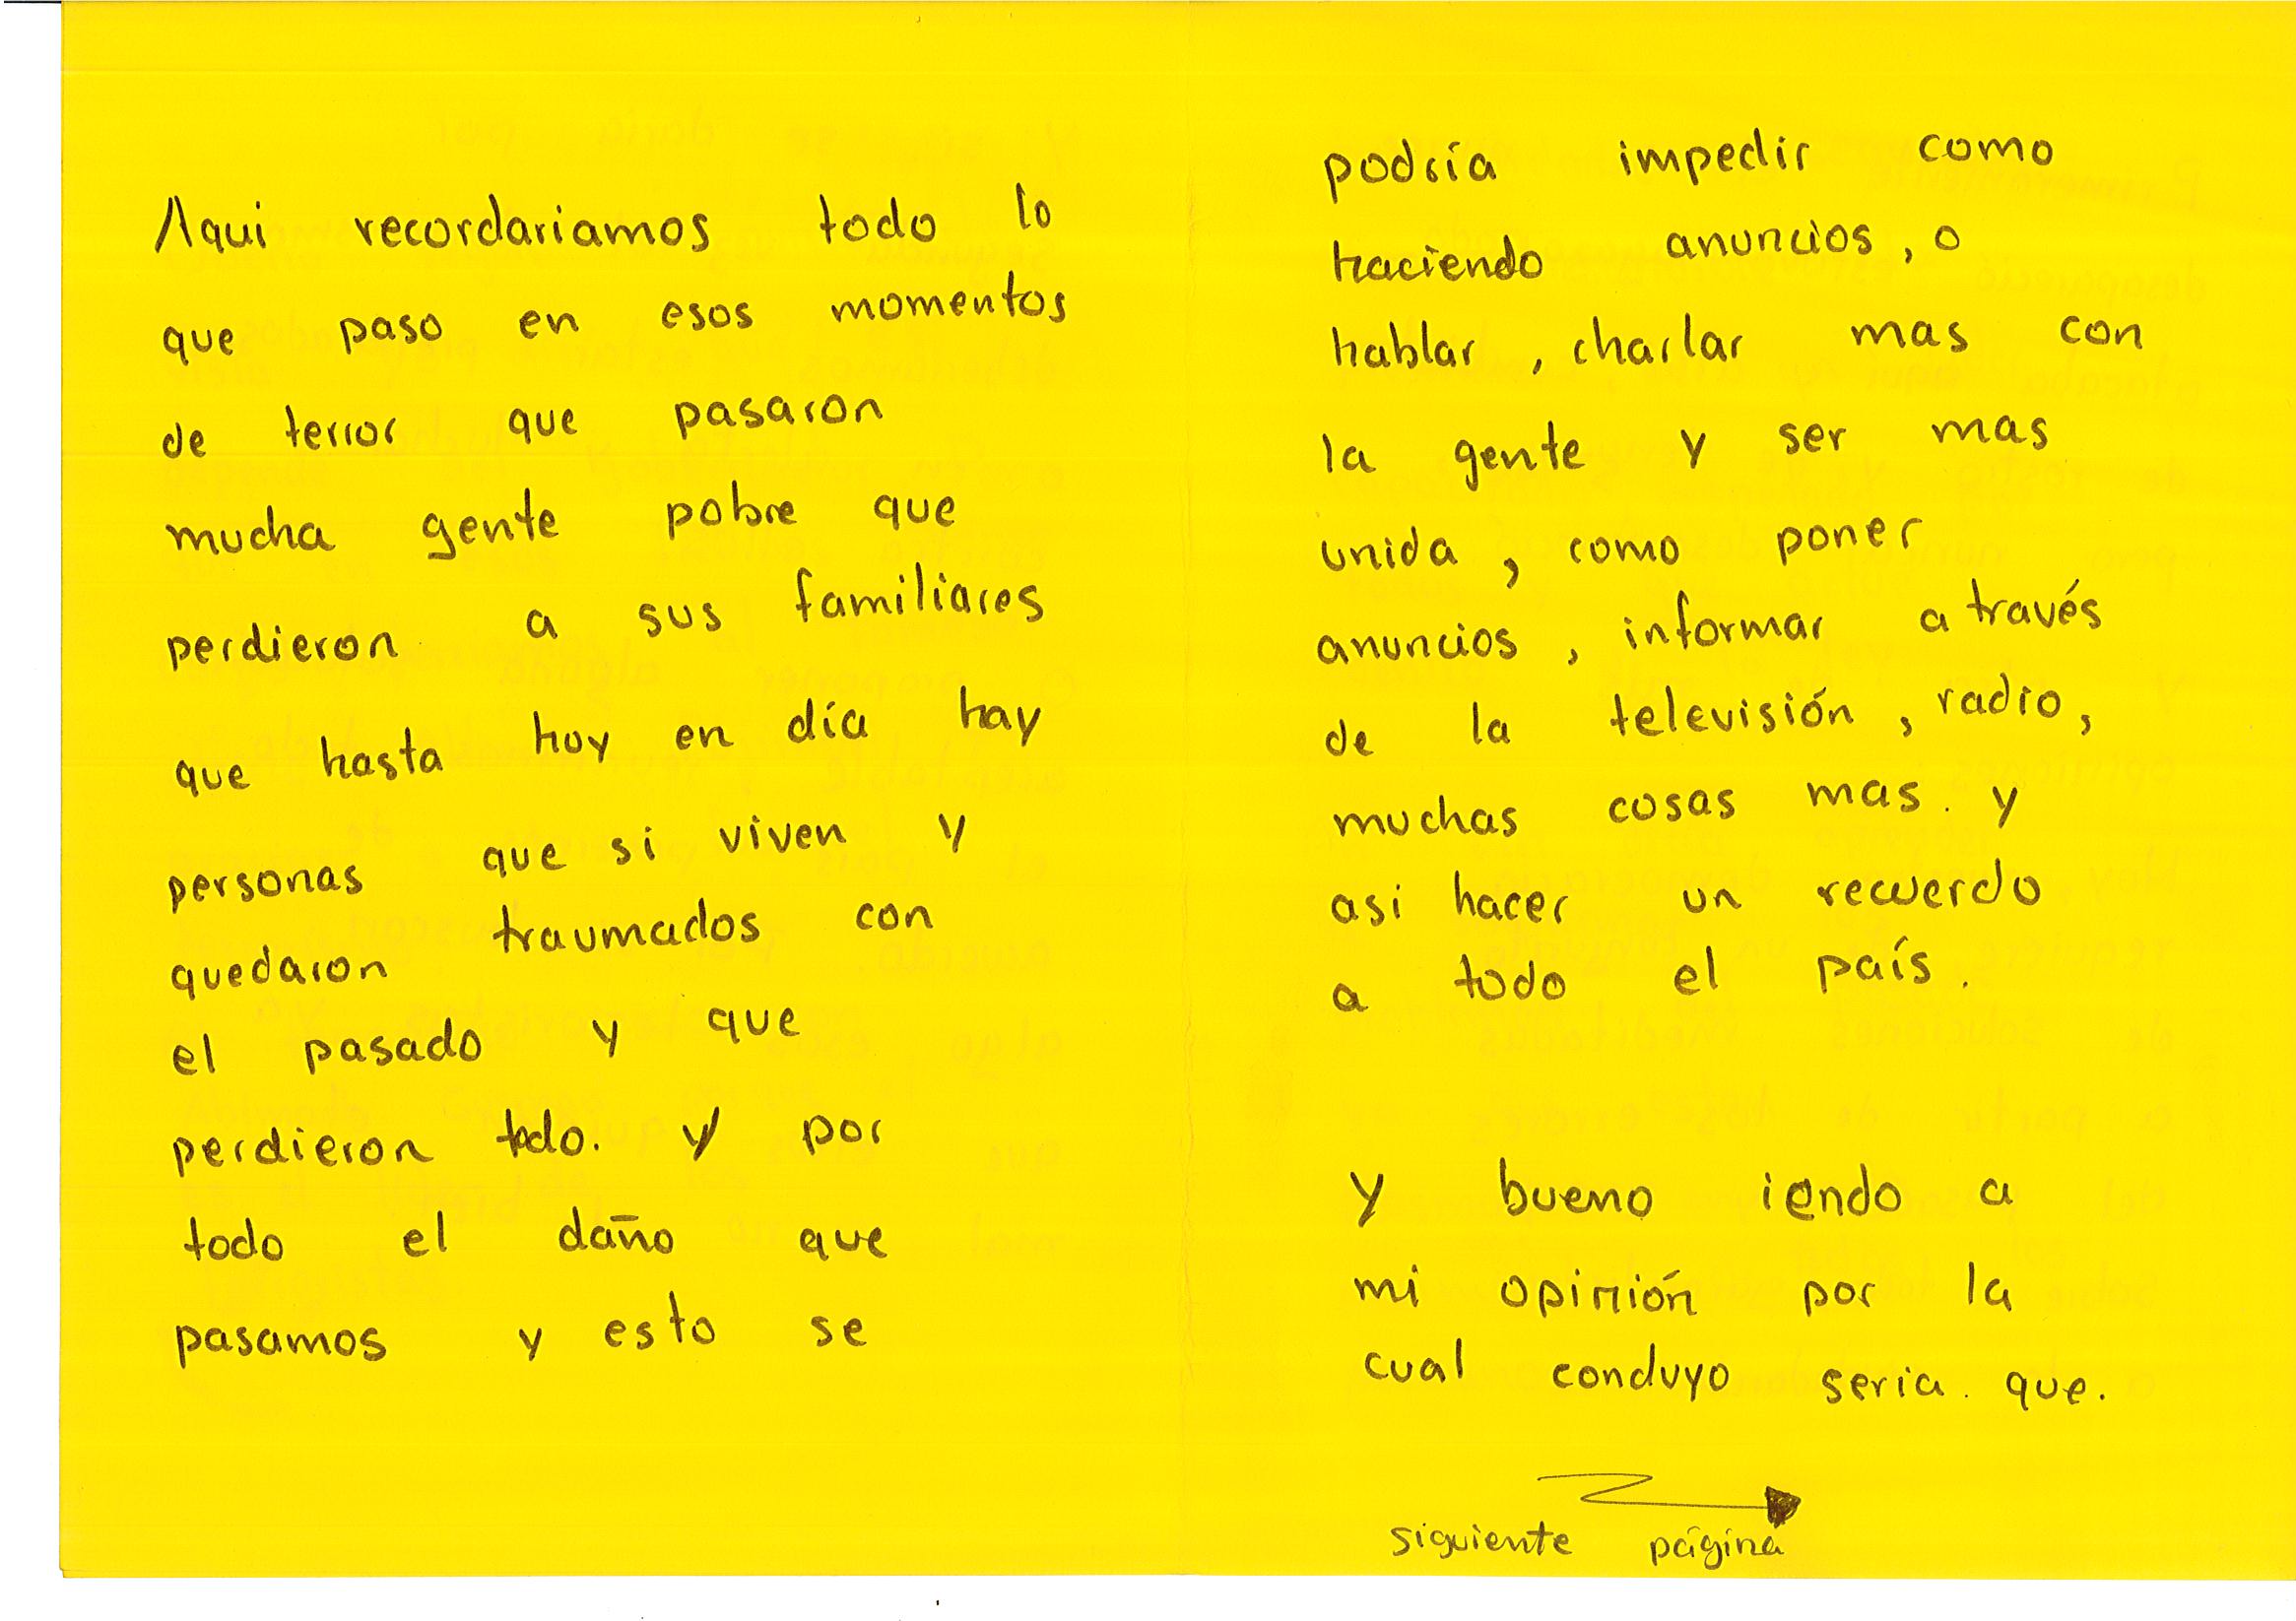 Aqui recordariamos todo lo
que paso en esos momentos
de terror que pasaron
mucha gente pobre que
perdieron a sus familiares
que hasta hoy en día hay
personas que si viven y
quedaron traumados con
el pasado y que
perdieron todo. y por
todo el daño que
pasamos y esto se
podría impedir como
haciendo anuncios, o
hablar, charlar mas con
la gente y ser mas
unida, como poner
anuncios, informar a través
de la televisión, radio,
muchas cosas mas. y
asi hacer un recuerdo
a todo el país.
y bueno iendo a
mi opinión por la
cual concluyo seria que.
siguiente página